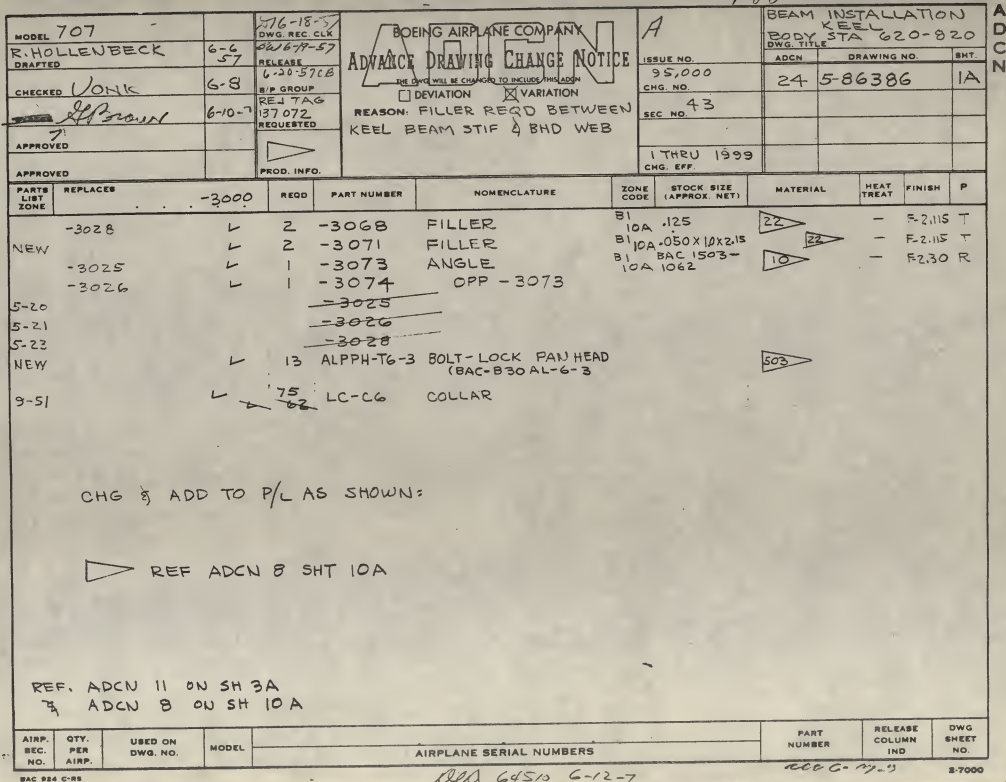 A
D
C
N
MODEL 707
R. HOLLENBECK 6-6 57
DRAFTED
CHECKED VONK 6-8
6-10-7
APPROVED
APPROVED
6-18-57
DWG. REC. CLK
6-19-57
RELEASE
6-20-57
B/P GROUP
REJ TAG
137072
REQUESTED
PROD. INFO.
BOEING AIRPLANE COMPANY
ADVANCE DRAWING CHANGE NOTICE
THE DWG WILL BE CHANGED TO INCLUDE THIS ADCN
DEVIATION VARIATION
REASON: FILLER REQD BETWEEN
KEEL BEAM STIF & BHD WEB
A
ISSUE NO.
95,000
CHG. NO.
SEC NO. 43
1 THRU 1999
CHG. EFF.
BEAM INSTALLATION
KEEL
BODY STA 620-820
DWG. TITLE
ADCN DRAWING NO. SHT.
24 5-86386 1A
PARTS LIST ZONE REPLACES -3000 REQD PART NUMBER NOMENCLATURE ZONE CODE STOCK SIZE (APPROX. NET) MATERIAL HEAT TREAT FINISH P
-3028 2 -3068 FILLER B1 10A .125 22 - F-2.115 T
NEW 2 -3071 FILLER B1 10A .050 X 1.0 X 2.15 22 - F-2.115 T
-3025 1 -3073 ANGLE B1 10A BAC 1503-1062 10 - F-2.30 R
-3026 1 -3074 OPP -3073
5-20 -3025
5-21 -3026
5-23 -3028
NEW 13 ALPPH-T6-3 BOLT-LOCK PAN HEAD 503
(BAC-B30 AL-6-3
9-51 75 62 LC-C6 COLLAR
CHG & ADD TO P/L AS SHOWN:
REF ADCN 8 SHT 10A
REF. ADCN 11 ON SH 3A
& ADCN 8 ON SH 10A
AIRP. SEC. NO. QTY. PER AIRP. USED ON DWG. NO. MODEL AIRPLANE SERIAL NUMBERS PART NUMBER RELEASE COLUMN IND DWG SHEET NO.
BAC 924 C-RS 64510 6-12-7 2-7000